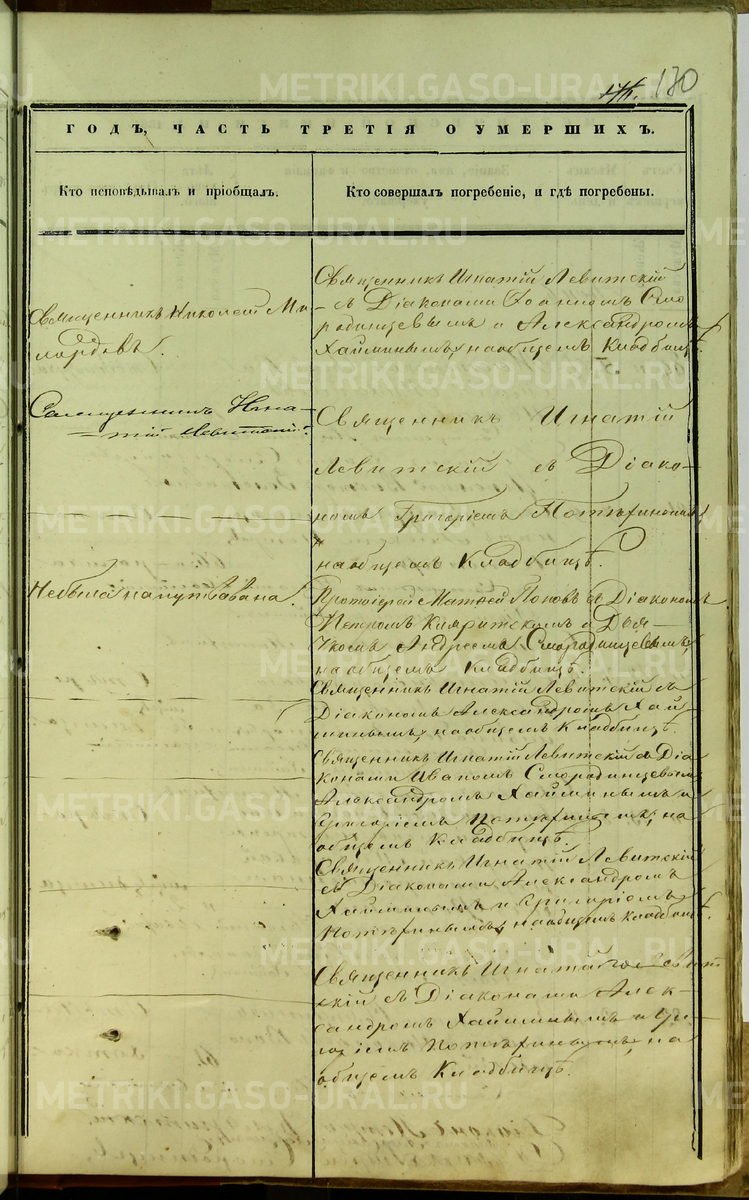 130
ГОДЪ, ЧАСТЬ ТРЕТІЯ О УМЕРШИХЪ.
Кто исповѣдывалъ и пріобщалъ.
Кто совершалъ погребеніе, и гдѣ погребены.
Священникъ Николай Ми-
лордовъ.
Священникъ Игна-
тій Левитскій.
Небыла напутствована.
Священникъ Игнатій Левитскій
съ Діаконами Іоанномъ Смо
родинцевымъ и Александромъ
Хайминымъ, на общемъ Кладбищѣ.
Священникъ Игнатій
Левитскій съ Діако-
номъ Григоріемъ Потѣхинымъ
на общемъ Кладбищѣ.
Протоіерей Матѳей Поповъ съ Діакономъ
Петромъ и Дья-
чкомъ Андреемъ Смородинцевымъ,
на общемъ Кладбищѣ.
Священникъ Игнатій Левитскій съ
Діакономъ Александромъ Хай-
минымъ, на общемъ Кладбищѣ.
Священникъ Игнатій Левитскій съ Діа
конами Иваномъ Смородинцевымъ
Александромъ Хайминымъ и
Григоріемъ Потѣхинымъ, на
общемъ Кладбищѣ.
Священникъ Игнатій Левитскій
съ Діаконами Александромъ
Хайминымъ и Григоріемъ
Потѣхинымъ, на общемъ Кладбищѣ.
Священникъ Игнатій Левит
скій съ Діаконами Алек-
сандромъ Хайминымъ и Гри-
горіемъ Потѣхинымъ, на
общемъ Кладбищѣ.
METRIKI.GASO-URAL.RU